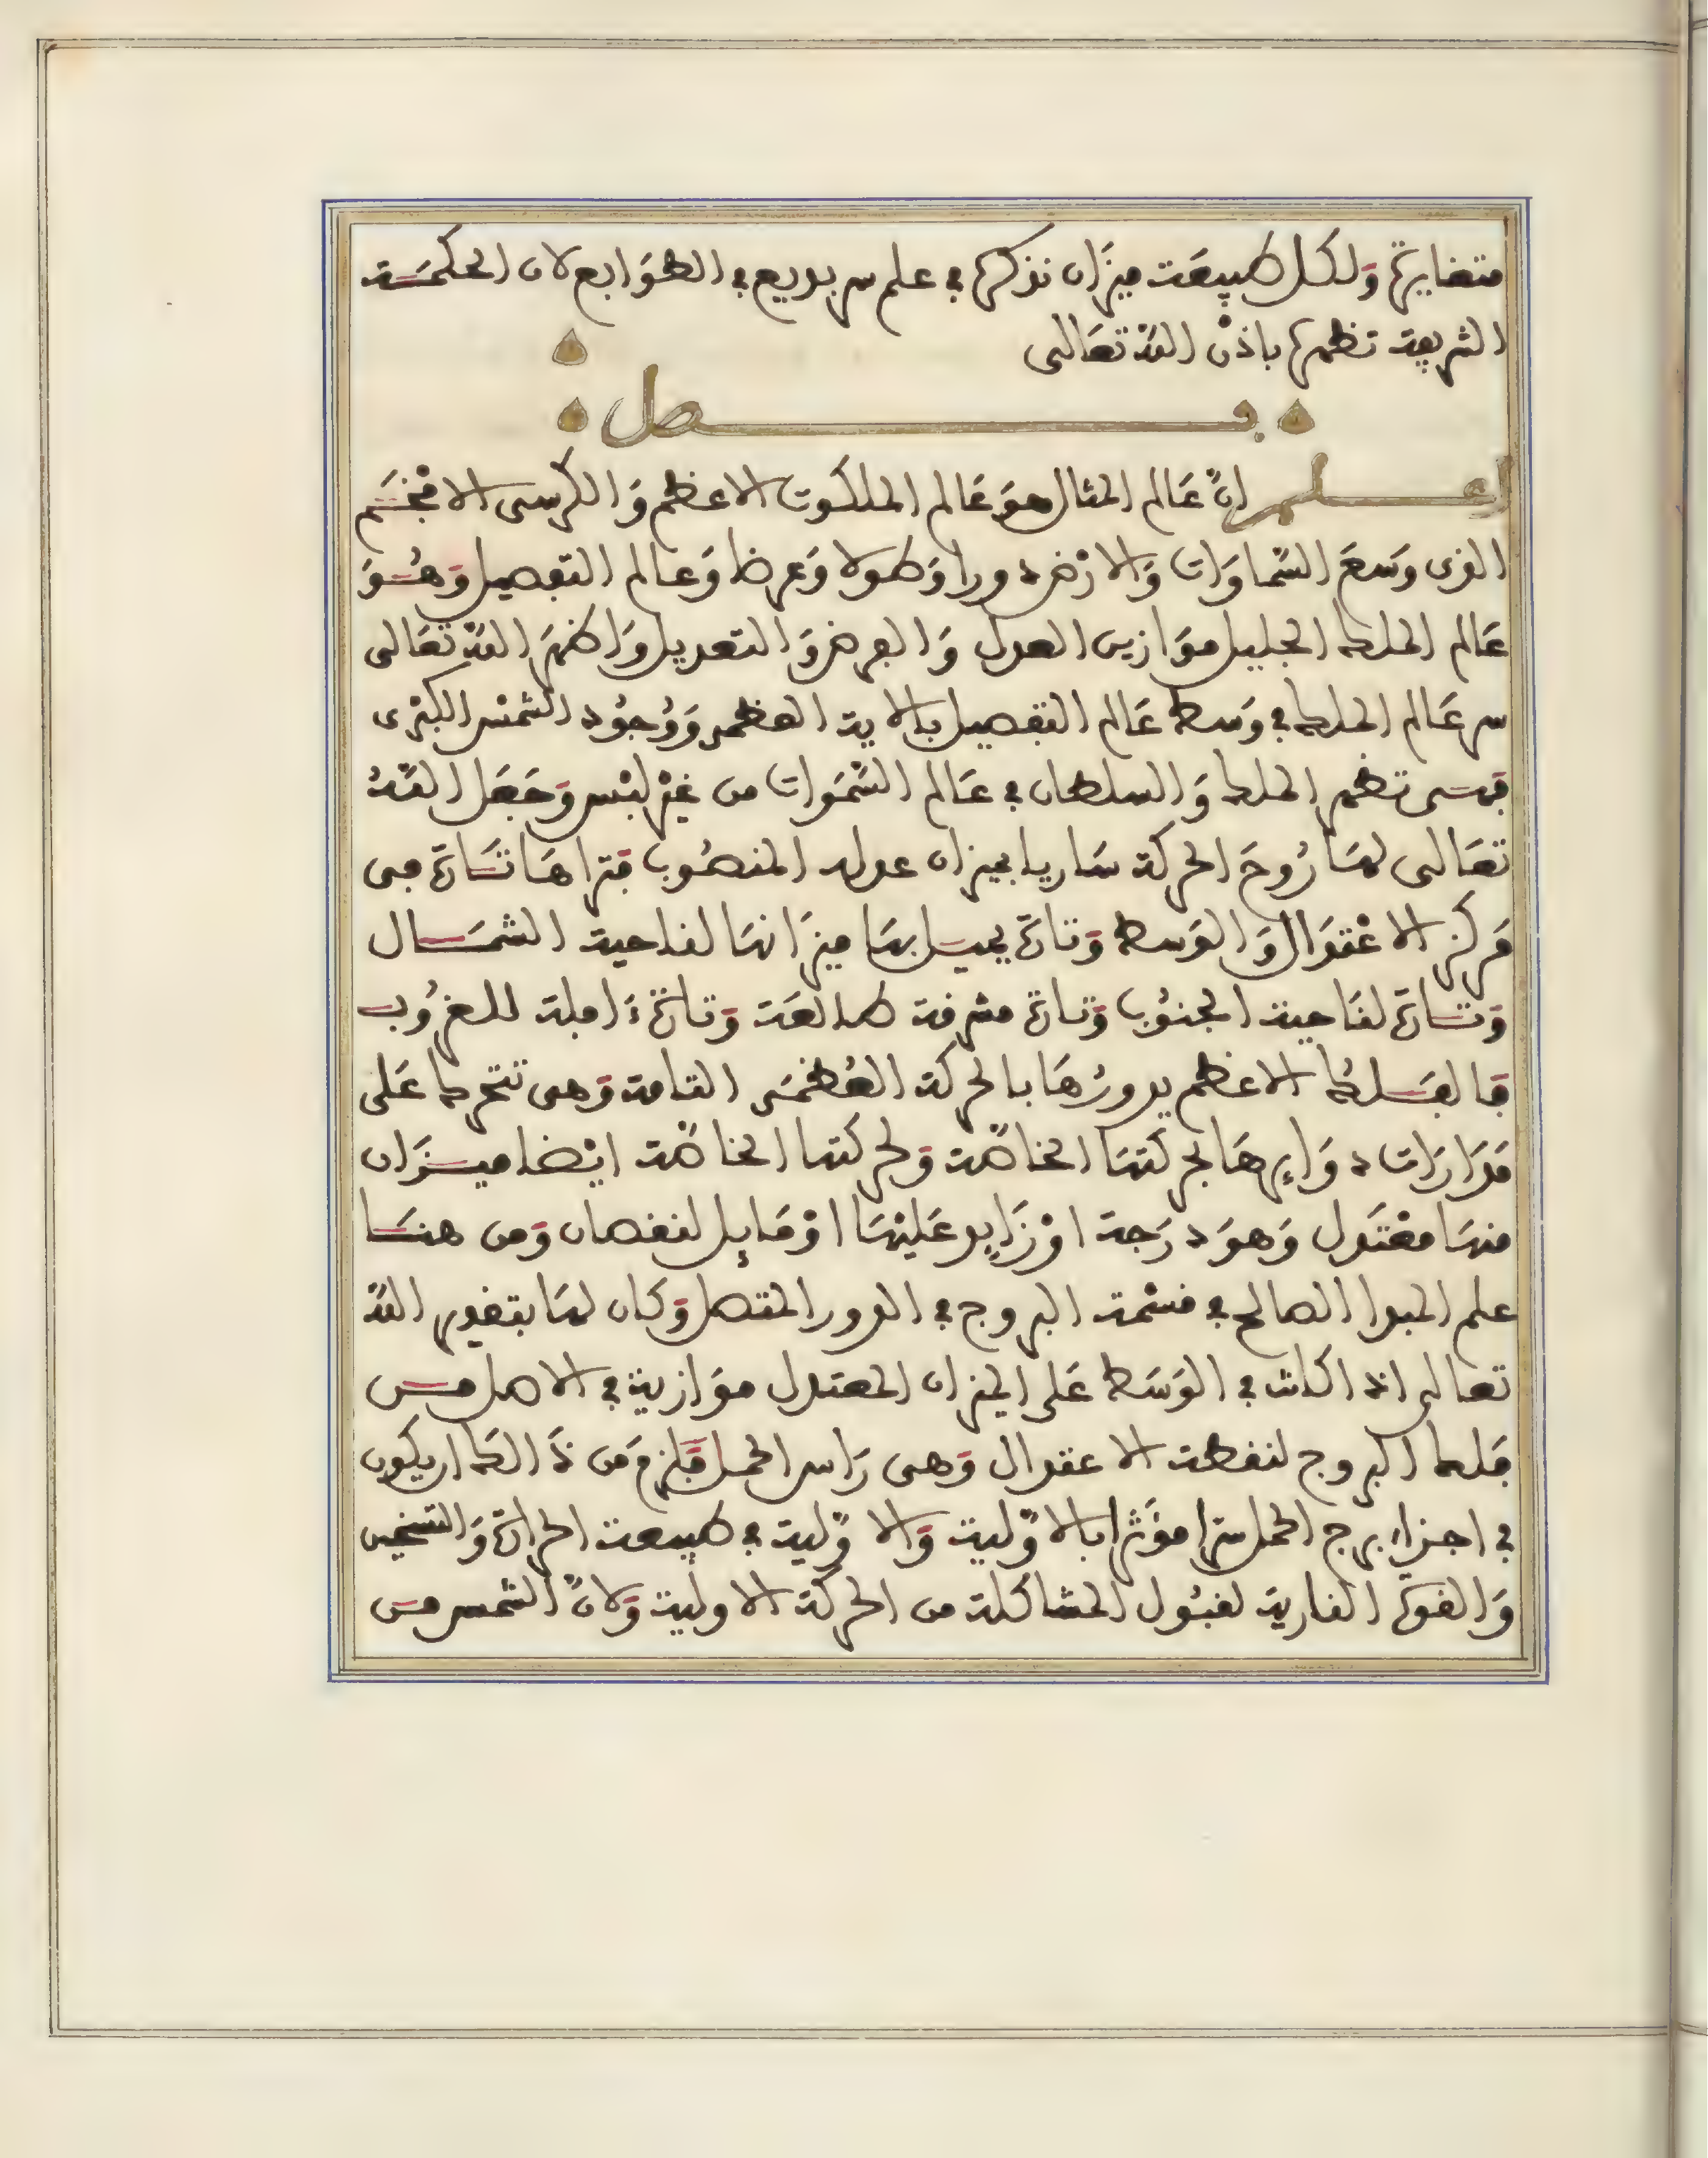 متضايرة وَلكل طبيعَة ميزَان نذكرها في علم سر بديع في الطوَابع لان الحكمَة
الشريفة تظهرها باذن اللّه تعَالى
فصل
اعلم انّ عَالم المثال هوَ عَالم الملكوت الاعظم وَالكرسى الافخَم
الذى وَسعَ السّماوَات وَالارْض دورا وَطولا وَعرضا وَعالم التفصيل وَهُوَ
عَالم الملك الجليل موَازين العدل وَالعرض وَالتعديل وَاظهَر اللّه تعَالى
سر عَالم الملك في وَسط عَالم التفصيل بالاية العظمى وَوُجوُد الشمْس الكبْرى
فهى تظهر الملك وَالسلطان في عَالم السّمَوات من غيْر لبْس وَجَعَل اللّهُ
تعَالى لهَا رُوحَ الحركة سَاريا بميزان عدله المنصُوب فتراهَا تَارَة فى
مَركز الاعْتدَال وَالوَسط وَتارَة يميل بهَا ميزَانهَا لناحية الشمَال
وَتَارَة لنَاحية الجنوُب وَتارَة مشرفة طالعَة وَتارَة ءَافلة للغرُوب
فالفَلكُ الاعظم يدورُهَا بالحركة العُظمَى التامة وَهى تتحرك عَلى
مَدَارَات دوَايرهَا بحركتهَا الخاصّة وَلحركتها الخاصّة ايْضا ميزَان
منهَا معْتَدل وَهوَ دَرَجة اوْ زَايد عَليْهَا اوْ مَايل لنقصان وَمن هنَا
علم المبدا الصالح في قسْمة البروج في الدور المتصل وَكان لهَا بتقدير اللّه
تعالى اذا كانت في الوَسَط عَلى الميزان المعتدل موَازية في الاصل من
فلك البروج لنقطة الاعتدال وَهى رَاس الحمل فَلزمَ من ذَالكَ ان يكون
في اجزاء برج الحمل سرّا مؤثرا بالاوّلية وَالاوّلية في طبيعة الحرارَة وَالتسخين
وَالقوة النارية لقبُول المشاكلة من الحركة الاولية وَلانّ الشمس من